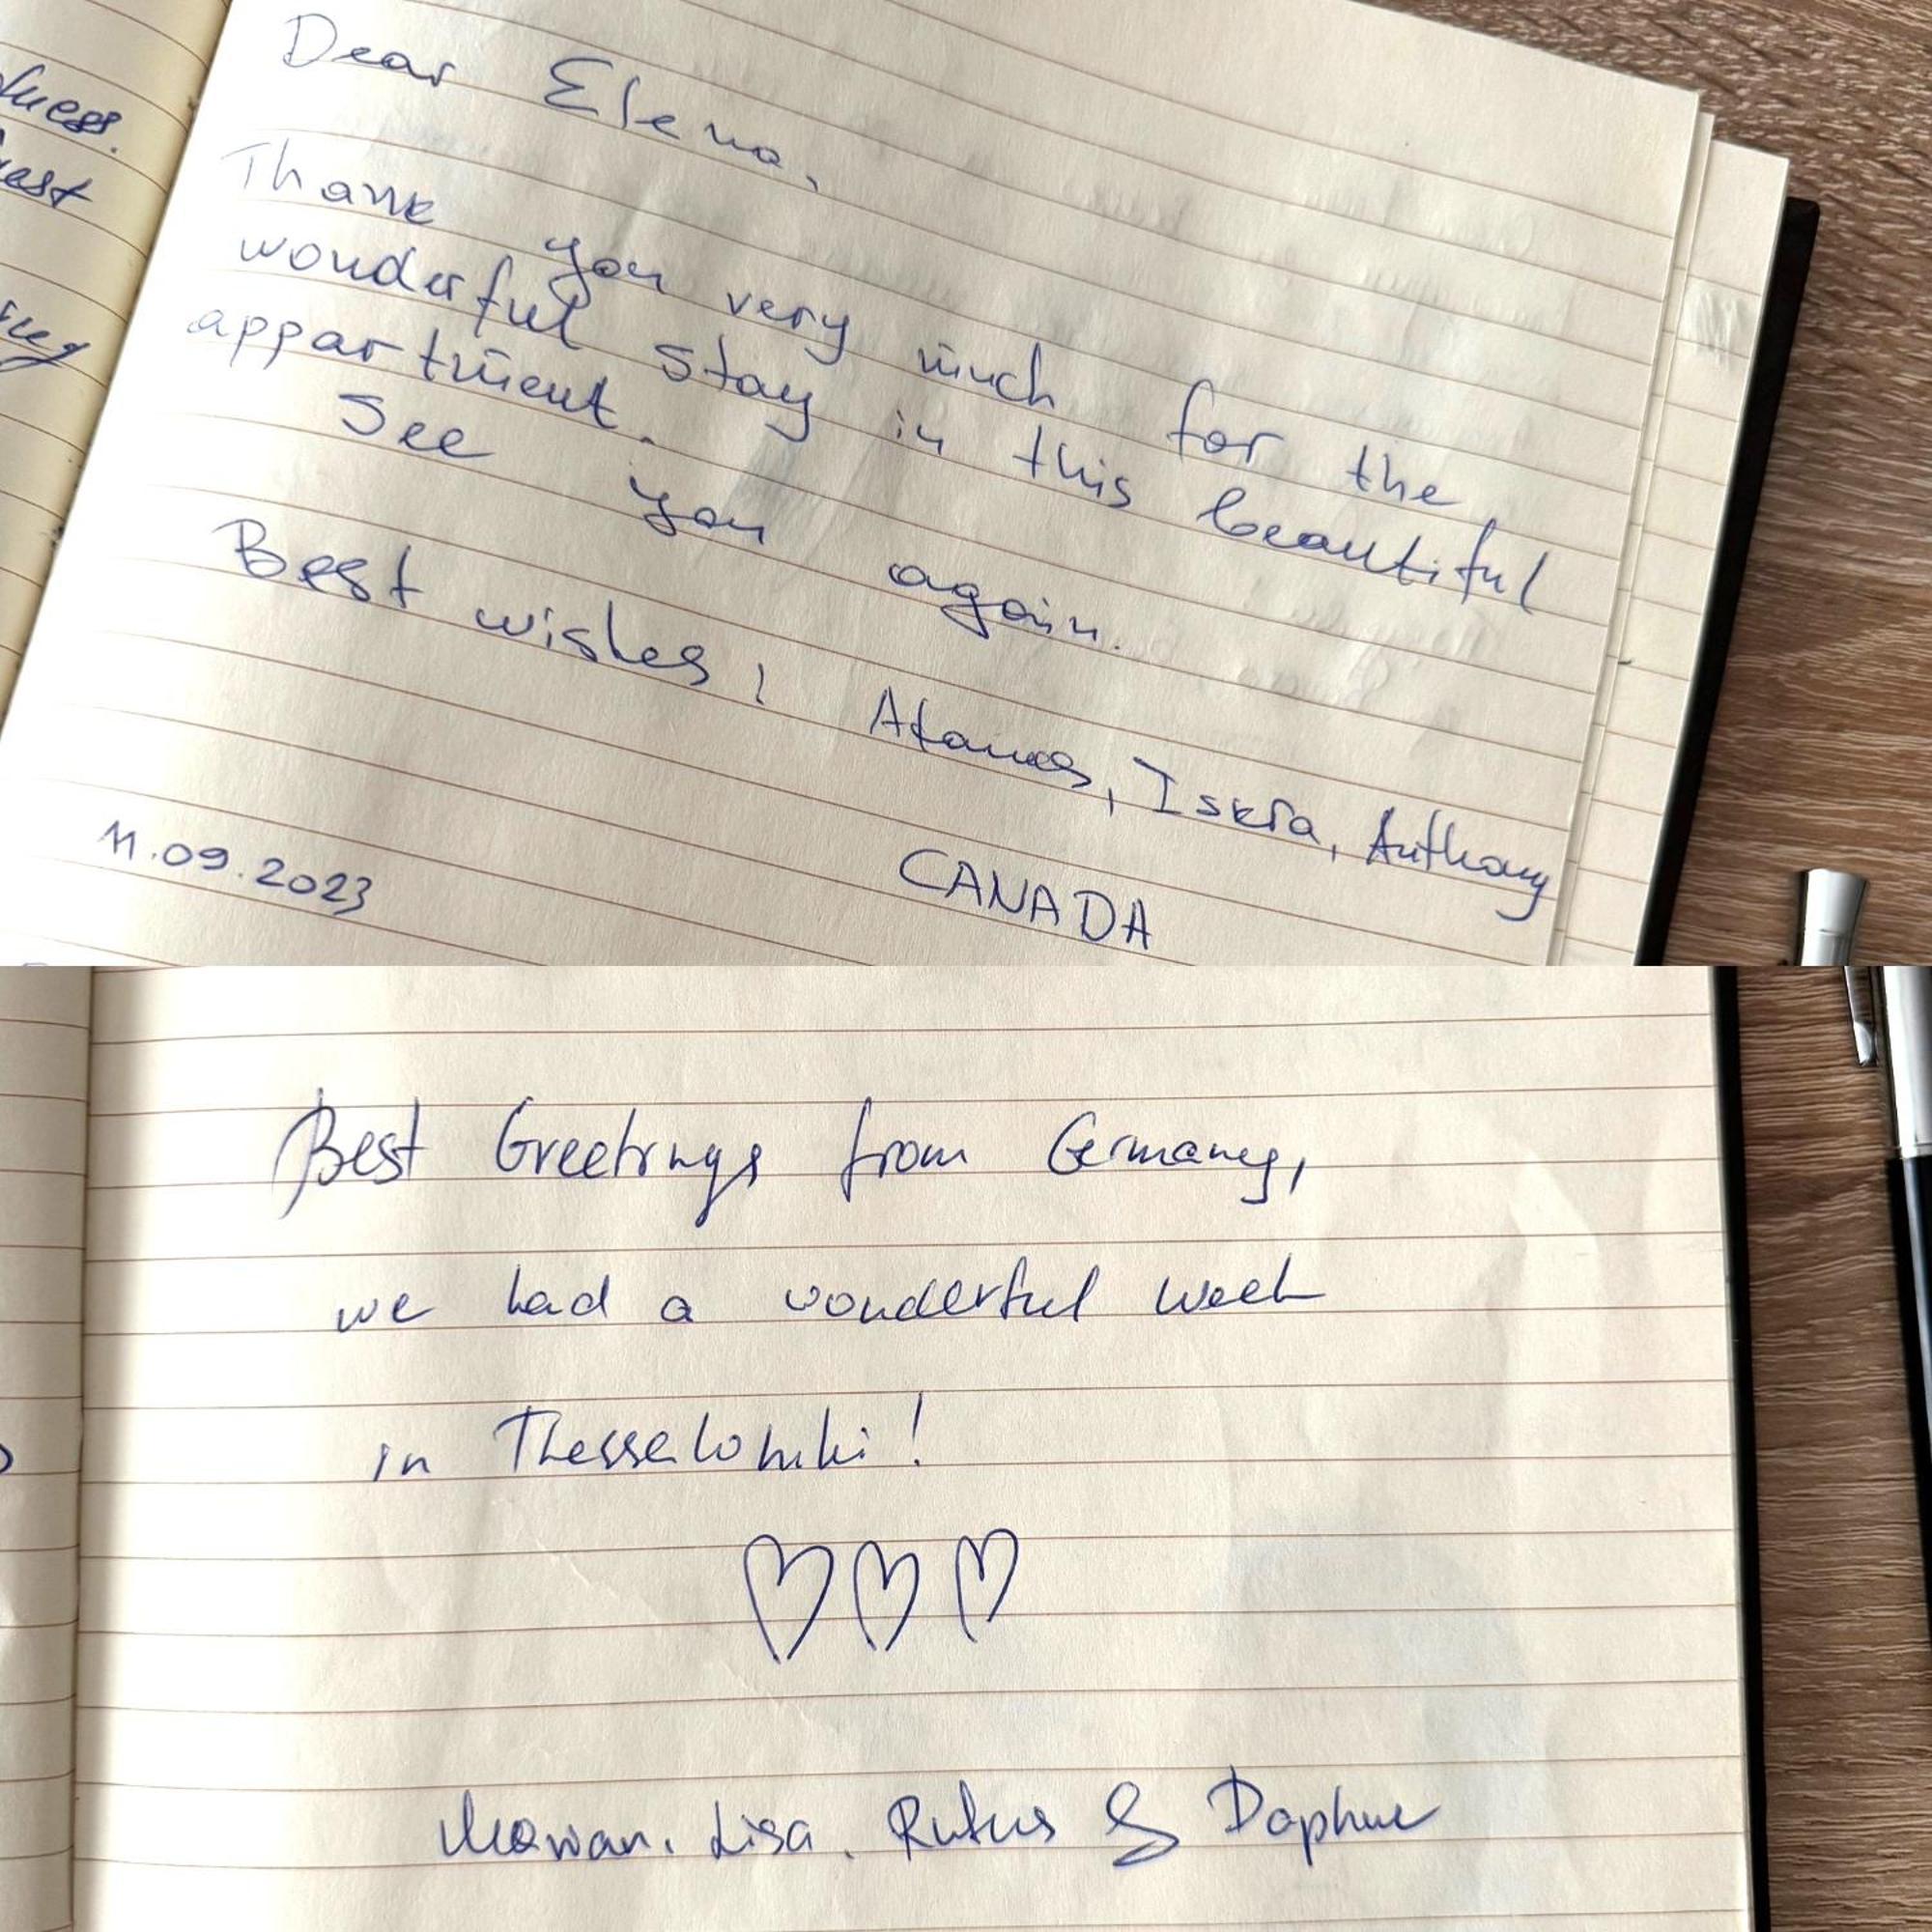 Dear Elena,
Thank you very much for the
wonderful stay in this beautiful
appartment.
See you again.
Best wishes, Atanas, Iskra, Anthony
11.09.2023 CANADA
Best Greetings from Germany,
we had a wonderful week
in Thessaloniki!
Lisa, Rufus & Daphne